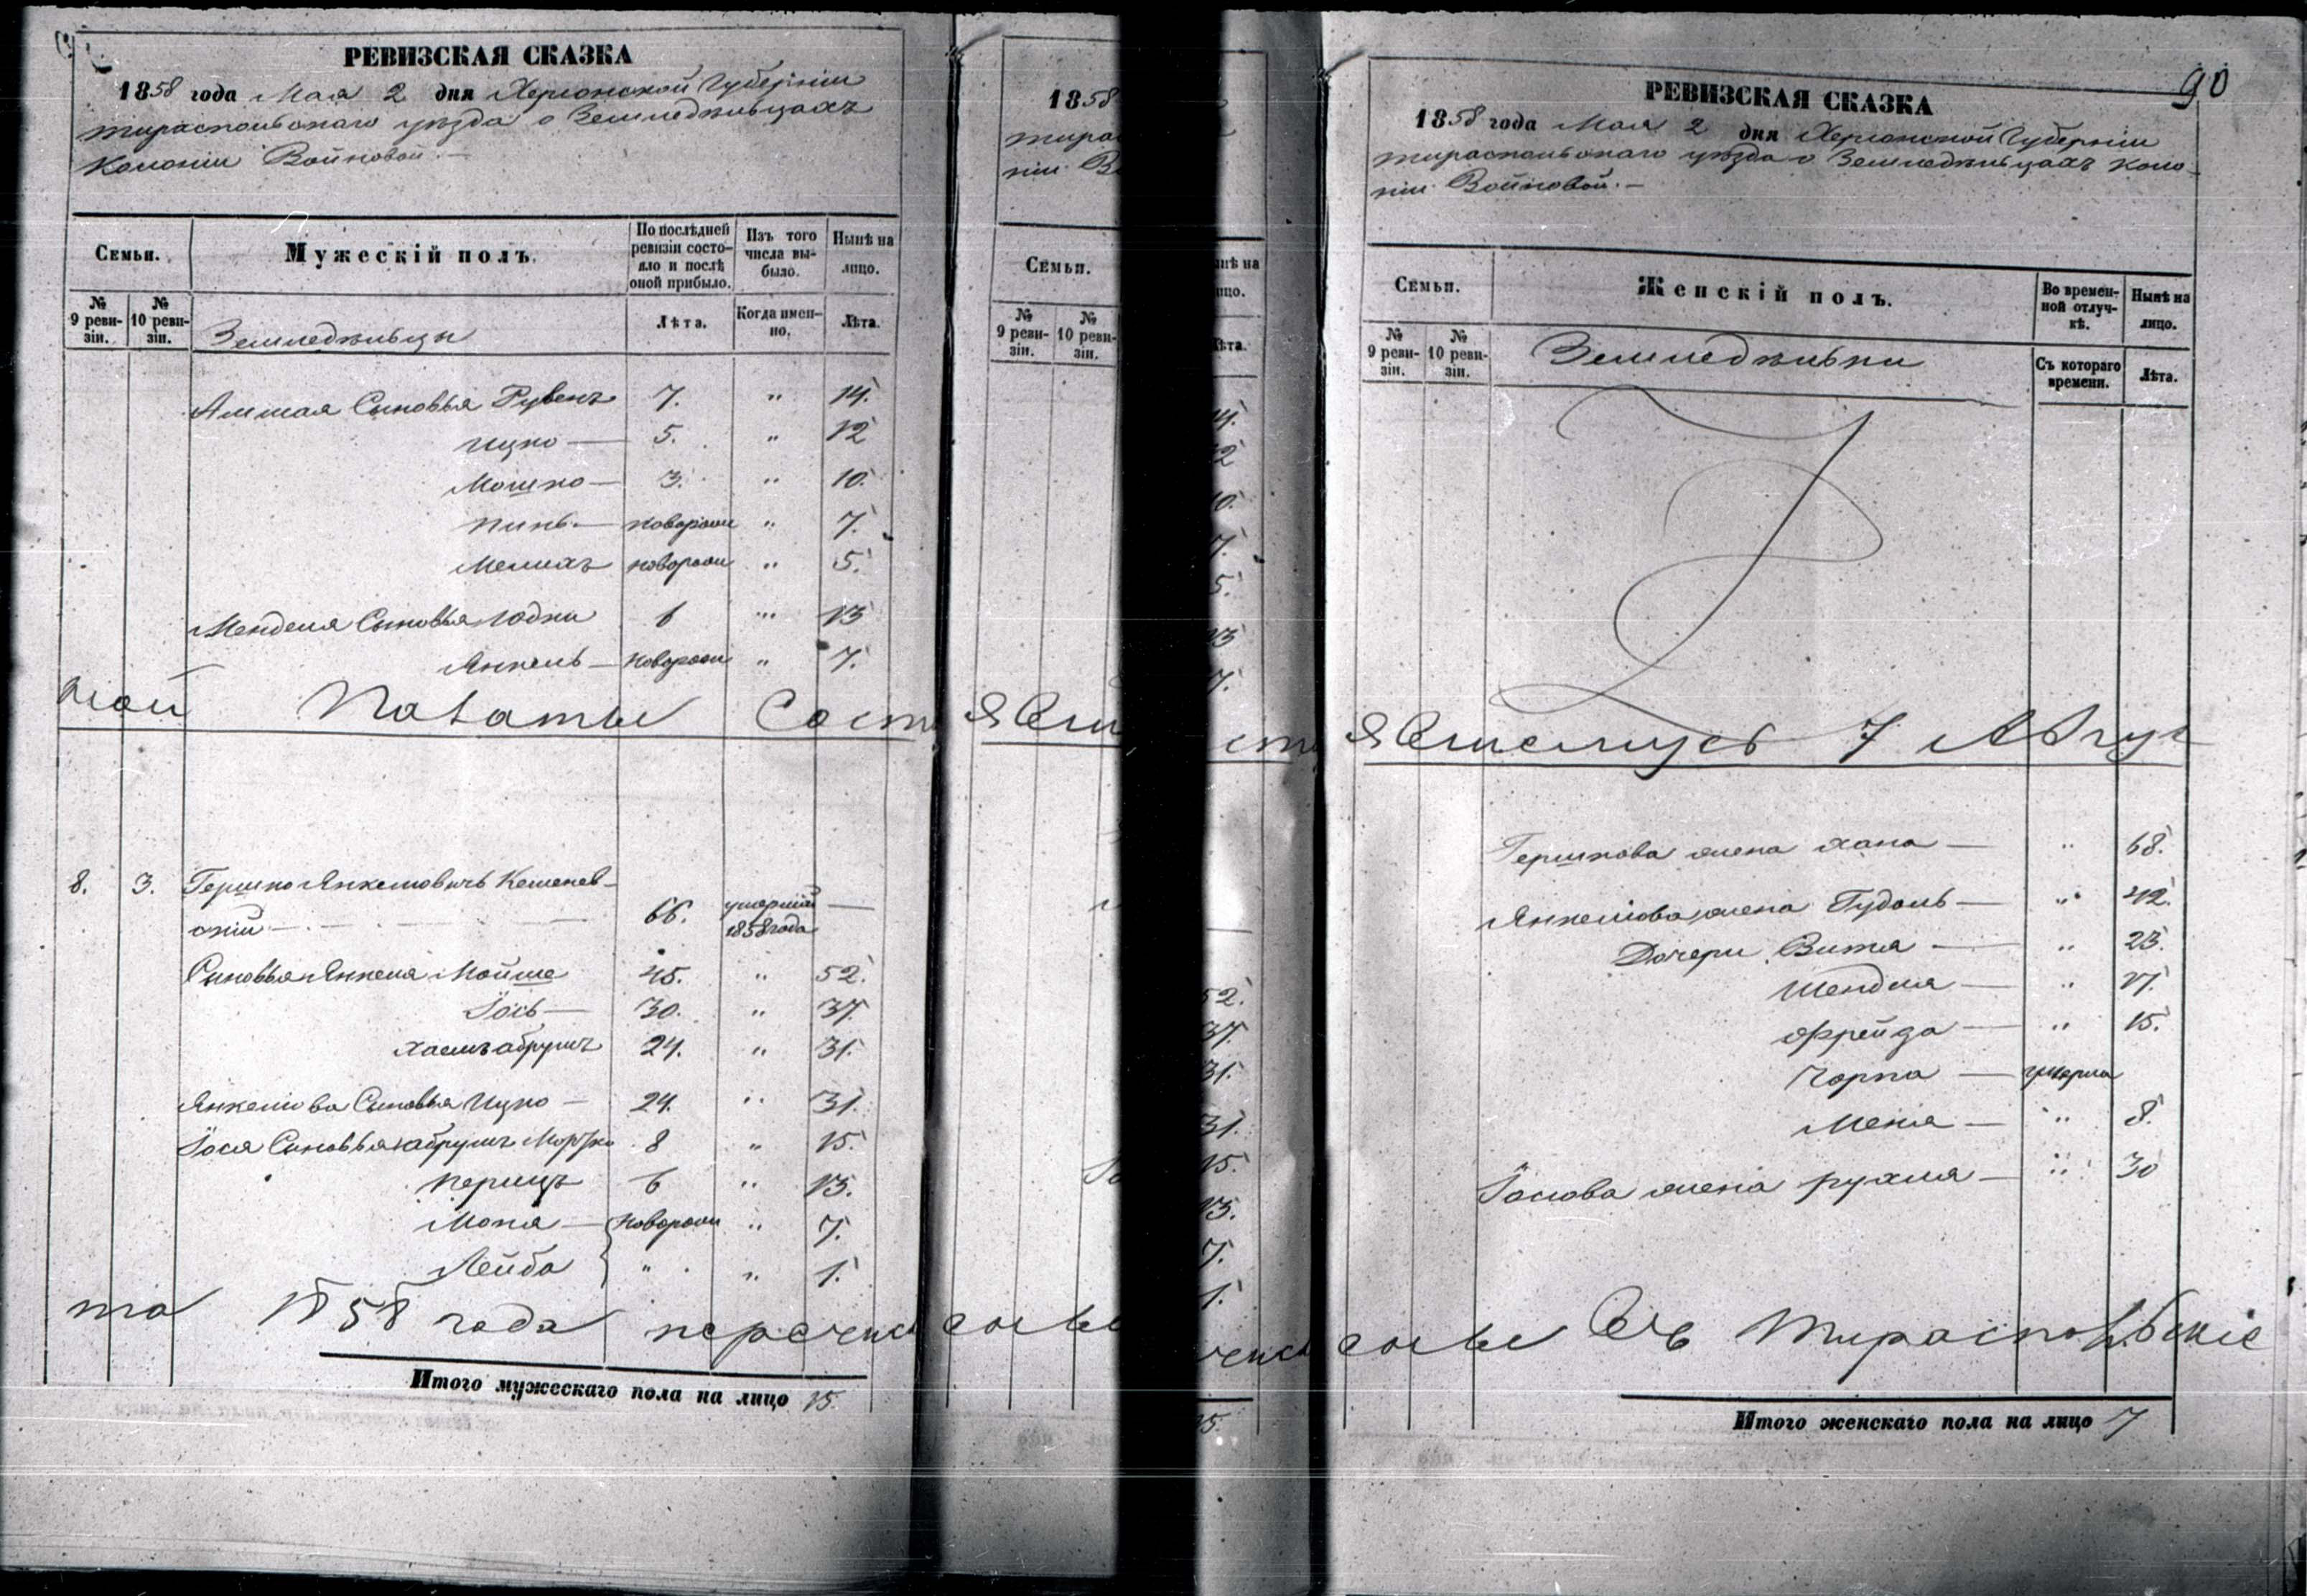 РЕВИЗСКАЯ СКАЗКА
1858 года Мая 2 дня Херсонской Губерніи
тираспольскаго уѣзда о Земледѣльцахъ
Колоніи Войновой.
Семьи.
Мужескій полъ.
По послѣдней ревизіи состо-
яло и послѣ
оной прибыло.
Изъ того
числа вы-
было.
Нынѣ на
лицо.
№
9 реви-
зіи.
№
10 реви-
зіи.
Земледѣльцы
Лѣта.
Когда имен-
но.
Лѣта.
Сыновья Рувенъ 7. " 14.
Ицко — 5. " 12
Мошко — 3. " 10.
Пинь — новорож " 7.
Мелихъ новорож " 5.
Менделя Сыновья Юдки 6 " 13
Янкель — новорож " 7.
ной Палаты Сост
8. 3. Гершко Янкелевичъ Кешенев-
скій — 66. умерший 1858 года —
Сыновья Янкель Мойше 45. " 52.
Іось — 30. " 37.
Хаемъ абрумъ 24. " 31.
Янкелева Сыновья Ицко — 24. " 31.
Іося Сыновья абрумъ Мортко 8 " 15.
перицъ 6 " 13.
Мопя — новорож " 7.
Лейба " " 1.
та 1858 года перечис
Итого мужескаго пола на лицо 15.
1858
тирас
ніи Во
Семьи.
№
9 реви-
зіи.
№
10 реви-
зіи.
90
РЕВИЗСКАЯ СКАЗКА
1858 года Мая 2 дня Херсонской Губерніи
тираспольскаго уѣзда о Земледѣльцахъ коло-
ніи Войновой. —
Семьи.
Женскій полъ.
Во времен-
ной отлуч-
кѣ.
Нынѣ на
лицо.
№
9 реви-
зіи.
№
10 реви-
зіи.
Земледѣльки
Съ котораго
времени.
Лѣта.
7 Авгус
Гершкова жена хана — " 68.
Янкелова жена Гудаль — " 42.
Дочери Витя — " 23.
Шендля — " 17.
Фрейда — " 15.
Чорна — умерла
Меня — " 8.
Іослова жена рухля — " 30
въ Тираспольскіе
Итого женскаго пола на лицо 7